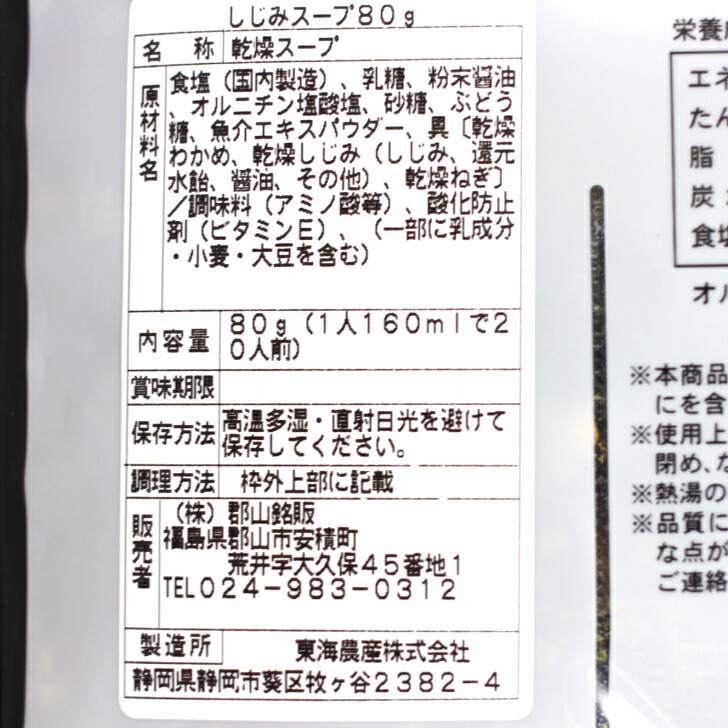 しじみスープ80g
名 称 乾燥スープ
原材料名
食塩(国内製造)、乳糖、粉末醤油
、オルニチン塩酸塩、砂糖、ぶどう
糖、魚介エキスパウダー、具〔乾燥
わかめ、乾燥しじみ(しじみ、還元
水飴、醤油、その他)、乾燥ねぎ〕
/調味料(アミノ酸等)、酸化防止
剤(ビタミンE)、(一部に乳成分
・小麦・大豆を含む)
内容量 80g(1人160mlで2
0人前)
賞味期限
保存方法 高温多湿・直射日光を避けて
保存してください。
調理方法 枠外上部に記載
販売者
(株)郡山銘販
福島県郡山市安積町
荒井字大久保45番地1
TEL024-983-0312
製造所 東海農産株式会社
静岡県静岡市葵区牧ヶ谷2382-4
栄養
エネ
たん
脂
炭
食塩
オル
※本商品
にを含
※使用上
閉め、な
※熱湯の
※品質に
な点が
ご連絡